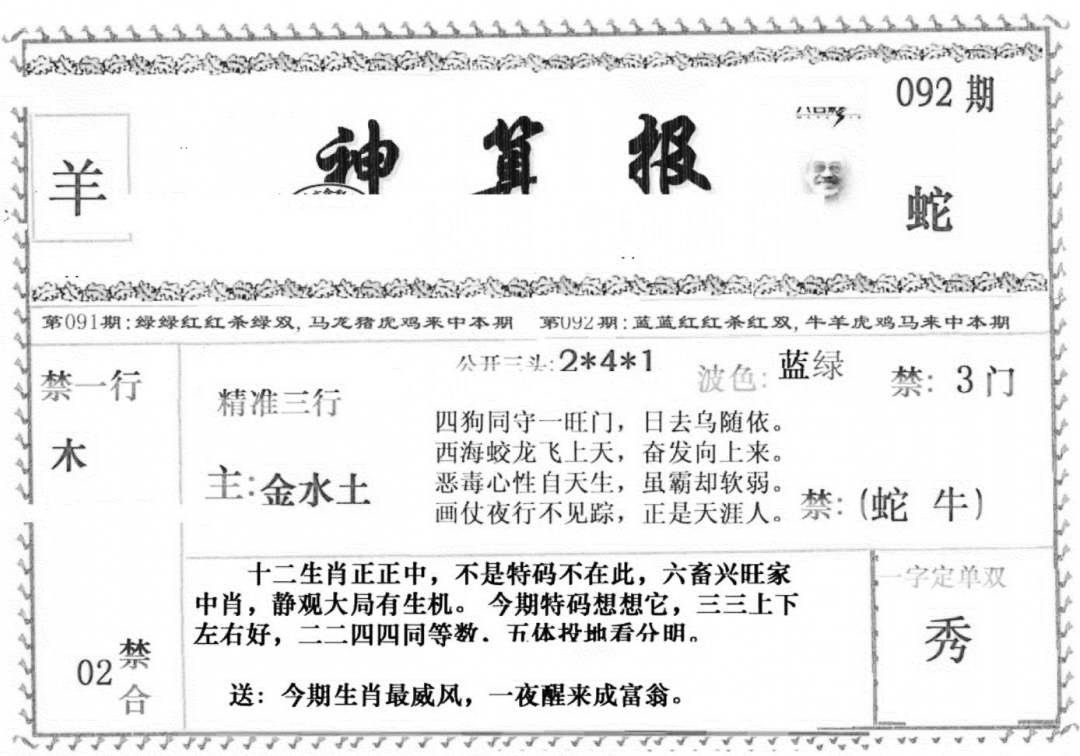 092期
羊
神算报
蛇
第091期:绿绿红红杀绿双,马龙猪虎鸡来中本期 第092期:蓝蓝红红杀红双,牛羊虎鸡马来中本期
禁一行
木
精准三行
主:金水土
公开三头:2*4*1
波色:蓝绿
禁:3门
四狗同守一旺门，日去乌随依。
西海蛟龙飞上天，奋发向上来。
恶毒心性自天生，虽霸却软弱。
画仗夜行不见踪，正是天涯人。
禁:(蛇 牛)
02禁合
十二生肖正正中，不是特码不在此，六畜兴旺家
中肖，静观大局有生机。 今期特码想想它，三三上下
左右好，二二四四同等数，五体投地看分明。
送：今期生肖最威风，一夜醒来成富翁。
一字定单双
秀